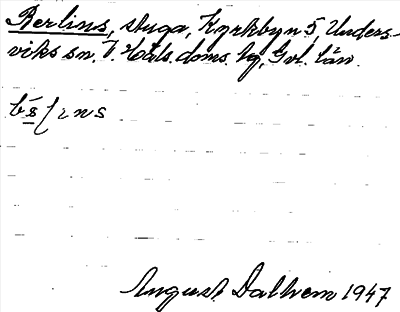 Berlins, stuga, Kyrkbyn 5, Unders-
viks sn. V. Häls. doms. hg, Gvl. län.
August Dalhem 1947